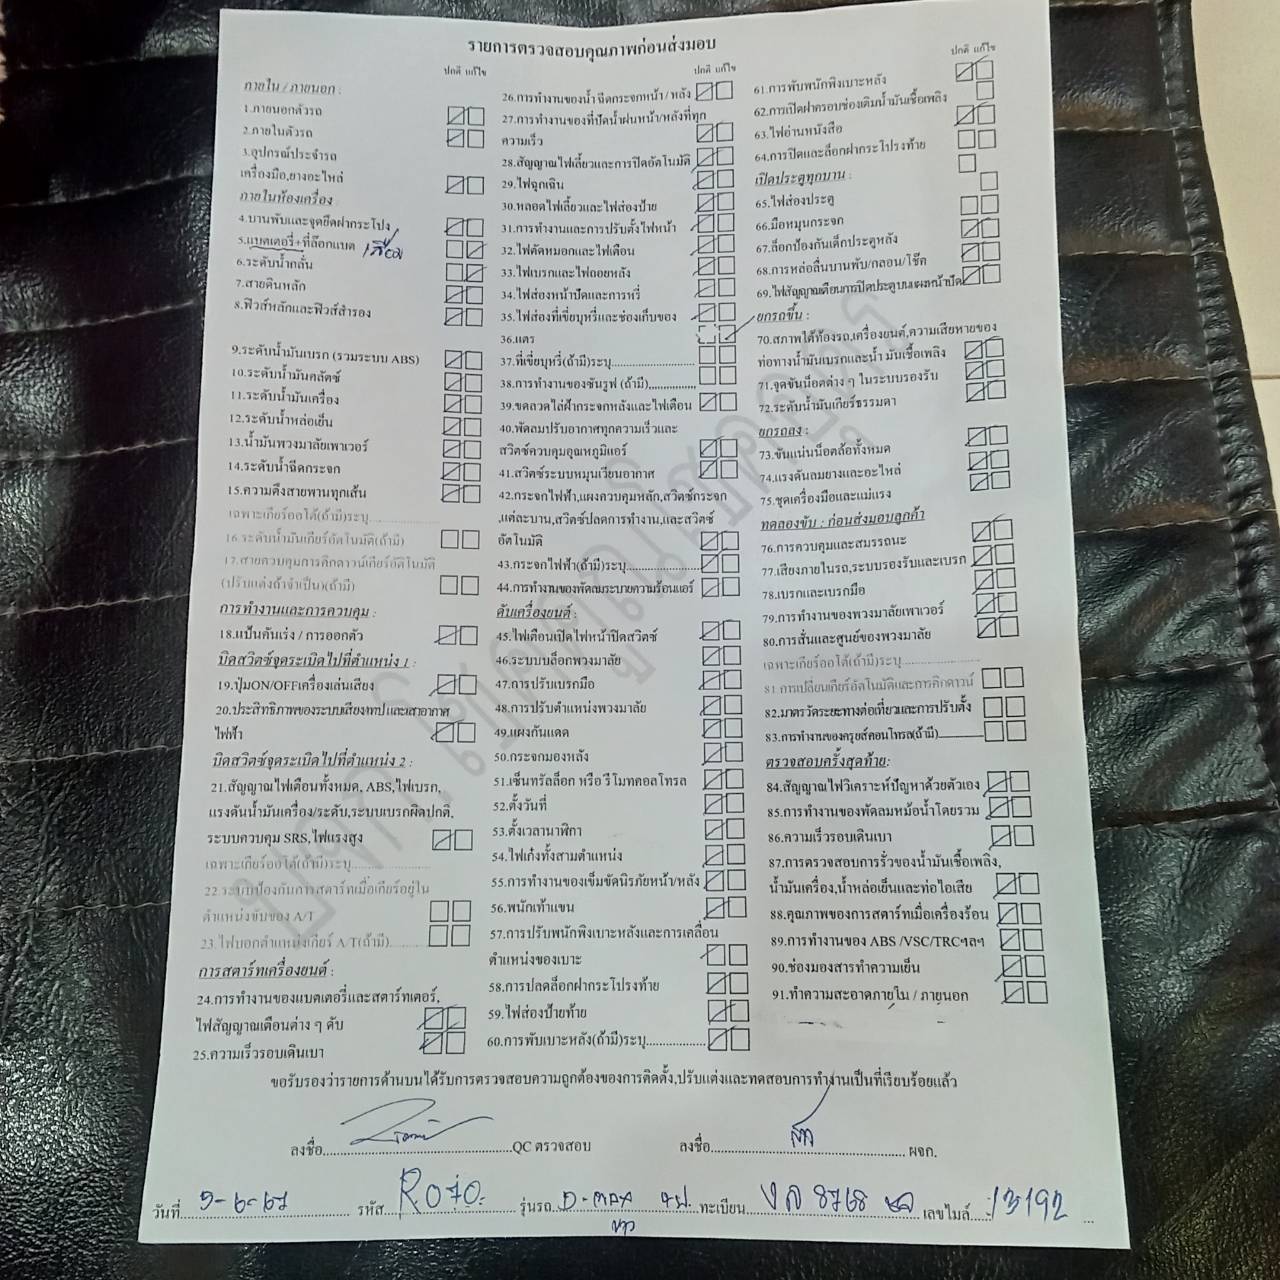 รายการตรวจสอบคุณภาพก่อนส่งมอบ
ปกติ แก้ไข
ภายใน / ภายนอก :
1.ภายนอกตัวรถ
2.ภายในตัวรถ
3.อุปกรณ์ประจำรถ
เครื่องมือ,ยางอะไหล่
ภายในห้องเครื่อง :
4.บานพับและจุดยึดฝากระโปง
5.แบตเตอรี่+ที่ล๊อกแบต
6.ระดับน้ำกลั่น
7.สายดินหลัก
8.ฟิวส์หลักและฟิวส์สำรอง
9.ระดับน้ำมันเบรก (รวมระบบ ABS)
10.ระดับน้ำมันคลัตซ์
11.ระดับน้ำมันเครื่อง
12.ระดับน้ำหล่อเย็น
13.น้ำมันพวงมาลัยเพาเวอร์
14.ระดับน้ำฉีดกระจก
15.ความตึงสายพานทุกเส้น
เฉพาะเกียร์ออโต้(ถ้ามี)ระบุ....................
16.ระดับน้ำมันเกียร์อัตโนมัติ(ถ้ามี)
17.สายควบคุมการคิกดาวน์เกียร์อัติโนมัติ
(ปรับแต่งถ้าจำเป็น)(ถ้ามี)
การทำงานและการควบคุม :
18.แป้นคันเร่ง / การออกตัว
บิดสวิตซ์จุดระเบิดไปที่ตำแหน่ง 1 :
19.ปุ่มON/OFFเครื่องเล่นเสียง
20.ประสิทธิภาพของระบบเสียงเทป และเสาอากาศ
ไฟฟ้า
บิดสวิตซ์จุดระเบิดไปที่ตำแหน่ง 2 :
21.สัญญาณไฟเตือนทั้งหมด, ABS,ไฟเบรก,
แรงดันน้ำมันเครื่อง/ระดับ,ระบบเบรกผิดปกติ,
ระบบควบคุม SRS,ไฟแรงสูง
เฉพาะเกียร์ออโต้(ถ้ามี)ระบุ....................
22.ระบบป้องกันการสตาร์ทเมื่อเกียร์อยู่ใน
ตำแหน่งขับของ A/T
23.ไฟบอกตำแหน่งเกียร์ A/T(ถ้ามี)..........
การสตาร์ทเครื่องยนต์ :
24.การทำงานของแบตเตอรี่และสตาร์ทเตอร์,
ไฟสัญญาณเตือนต่าง ๆ ดับ
25.ความเร็วรอบเดินเบา
ปกติ แก้ไข
26.การทำงานของน้ำ ฉีดกระจกหน้า / หลัง
27.การทำงานของที่ปัดน้ำฝนหน้า/หลังที่ทุก
ความเร็ว
28.สัญญาณไฟเลี้ยวและการปิดอัตโนมัติ
29.ไฟฉุกเฉิน
30.หลอดไฟเลี้ยวและไฟส่องป้าย
31.การทำงานและการปรับตั้งไฟหน้า
32.ไฟตัดหมอกและไฟเตือน
33.ไฟเบรกและไฟถอยหลัง
34.ไฟส่องหน้าปัดและการหรี่
35.ไฟส่องที่เขี่ยบุหรี่และช่องเก็บของ
36.แตร
37.ที่เขี่ยบุหรี่(ถ้ามี)ระบุ....................
38.การทำงานของซันรูฟ (ถ้ามี)...............
39.ขดลวดไล่ฝ้ากระจกหลังและไฟเตือน
40.พัดลมปรับอากาศทุกความเร็วและ
สวิตซ์ควบคุมอุณหภูมิแอร์
41.สวิตซ์ระบบหมุนเวียนอากาศ
42.กระจกไฟฟ้า,แผงควบคุมหลัก,สวิตซ์กระจก
,แต่ละบาน,สวิตซ์ปลดการทำงาน,และสวิตซ์
อัตโนมัติ
43.กระจกไฟฟ้า(ถ้ามี)ระบุ....................
44.การทำงานของพัดลมระบายความร้อนแอร์
ดับเครื่องยนต์ :
45.ไฟเตือนเปิดไฟหน้าปิดสวิตซ์
46.ระบบบล็อกพวงมาลัย
47.การปรับเบรกมือ
48.การปรับตำแหน่งพวงมาลัย
49.แผงกันแดด
50.กระจกมองหลัง
51.เซ็นทรัลล็อก หรือ รีโมทคอลโทรล
52.ตั้งวันที่
53.ตั้งเวลานาฬิกา
54.ไฟเก๋งทั้งสามตำแหน่ง
55.การทำงานของเข็มขัดนิรภัยหน้า/หลัง
56.พนักเท้าแขน
57.การปรับพนักพิงเบาะหลังและการเคลื่อน
ตำแหน่งของเบาะ
58.การปลดล็อกฝากระโปรงท้าย
59.ไฟส่องป้ายท้าย
60.การพับเบาะหลัง(ถ้ามี)ระบุ..................
ปกติ แก้ไข
61.การพับพนักพิงเบาะหลัง
62.การเปิดฝาครอบช่องเติมน้ำมันเชื้อเพลิง
63.ไฟอ่านหนังสือ
64.การปิดและล็อกฝากระโปรงท้าย
เปิดประตูทุกบาน :
65.ไฟส่องประตู
66.มือหมุนกระจก
67.ล็อกป้องกันเด็กประตูหลัง
68.การหล่อลื่นบานพับ/กลอน/โช๊ค
69.ไฟสัญญาณเตือนการปิดประตูบนแผงหน้าปัด
ยกรถขึ้น :
70.สภาพใต้ท้องรถ,เครื่องยนต์,ความเสียหายของ
ท่อทางน้ำมันเบรกและน้ำ มันเชื้อเพลิง
71.จุดขันน็อตต่าง ๆ ในระบบรองรับ
72.ระดับน้ำมันเกียร์ธรรมดา
ยกรถลง :
73.ขันแน่นน็อตล้อทั้งหมด
74.แรงดันลมยางและอะไหล่
75.ชุดเครื่องมือและแม่แรง
ทดลองขับ : ก่อนส่งมอบลูกค้า
76.การควบคุมและสมรรถนะ
77.เสียงภายในรถ,ระบบรองรับและเบรก
78.เบรกและเบรกมือ
79.การทำงานของพวงมาลัยเพาเวอร์
80.การสั่นและศูนย์ของพวงมาลัย
เฉพาะเกียร์ออโต้(ถ้ามี)ระบุ....................
81.การเปลี่ยนเกียร์อัตโนมัติและการคิกดาวน์
82.มาตรวัดระยะทางต่อเที่ยวและการปรับตั้ง
83.การทำงานของครุยส์คอนโทรล(ถ้ามี)..........
ตรวจสอบครั้งสุดท้าย:
84.สัญญาณไฟวิเคราะห์ปัญหาด้วยตัวเอง
85.การทำงานของพัดลมหม้อน้ำโดยรวม
86.ความเร็วรอบเดินเบา
87.การตรวจสอบการรั่วของน้ำมันเชื้อเพลิง,
น้ำมันเครื่อง,น้ำหล่อเย็นและท่อไอเสีย
88.คุณภาพของการสตาร์ทเมื่อเครื่องร้อน
89.การทำงานของ ABS /VSC/TRCฯลฯ
90.ช่องมองสารทำความเย็น
91.ทำความสะอาดภายใน / ภายนอก
ขอรับรองว่ารายการด้านบนได้รับการตรวจสอบความถูกต้องของการติดตั้ง,ปรับแต่งและทดสอบการทำงานเป็นที่เรียบร้อยแล้ว
ลงชื่อ..................QC ตรวจสอบ ลงชื่อ.................. ผจก.
วันที่ 5-6-67 รหัส R070 รุ่นรถ D-max ทะเบียน 8768 เลขไมล์ 13192
ขาว